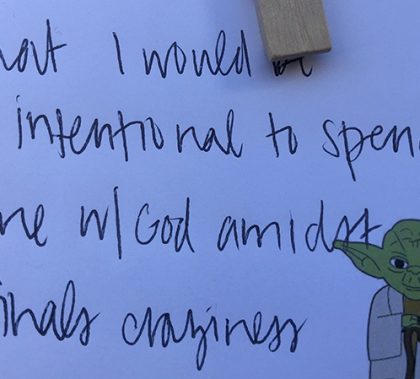 hat I would
intentional to spen
me w/ God amidst
inals craziness